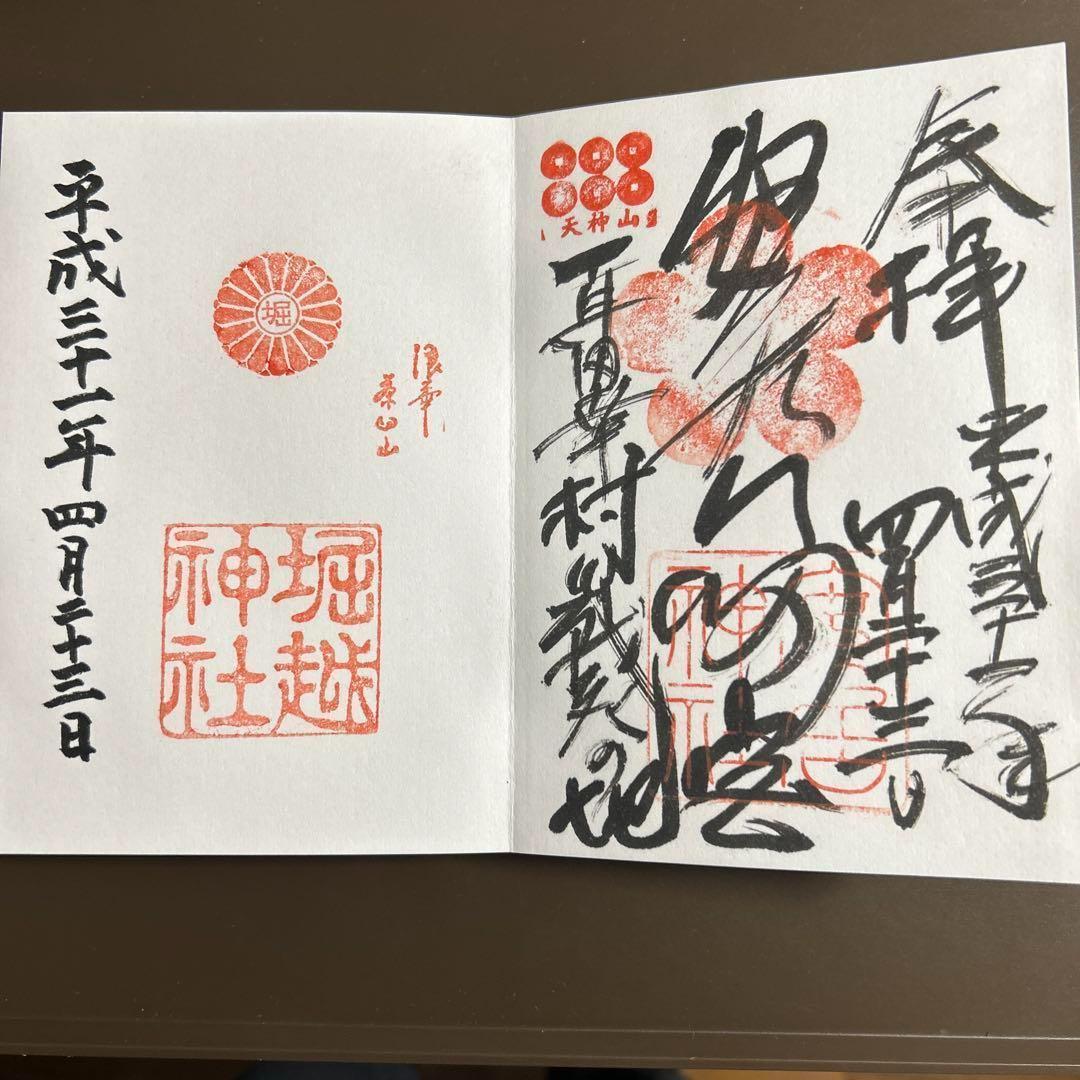 奉拝
平成三十一年
四月二十三日
安居神社
天神山
真田幸村戦死の地
平成三十一年四月二十三日
堀
浪華
茶臼山
堀越
神社